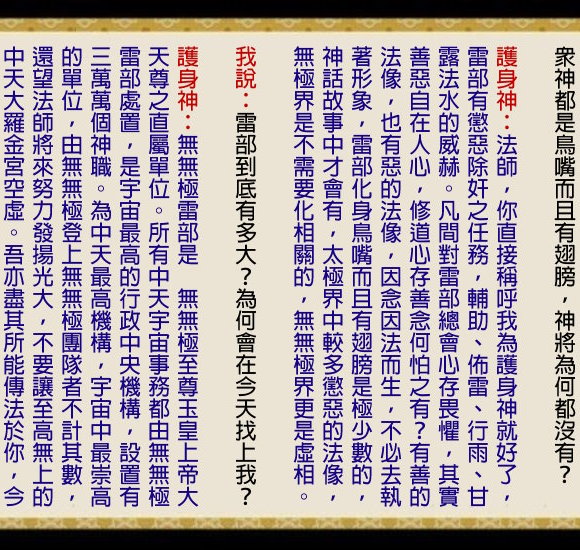 眾神都是鳥嘴而且有翅膀，神將為何都沒有？
護身神：法師，你直接稱呼我為護身神就好了，
雷部有懲惡除奸之任務，輔助、佈雷、行雨、甘
露法水的威赫。凡間對雷部總會心存畏懼，其實
善惡自在人心，修道心存善念何怕之有？有善的
法像，也有惡的法像，因念因法而生，不必去執
著形象，雷部化身鳥嘴而且有翅膀是極少數的，
神話故事中才會有，太極界中較多懲惡的法像，
無極界是不需要化相關的，無無極界更是虛相。
我說：雷部到底有多大？為何會在今天找上我？
護身神：無無極雷部是　無無極至尊玉皇上帝大
天尊之直屬單位。所有中天宇宙事務都由無無極
雷部處置，是宇宙最高的行政中央機構，設置有
三萬萬個神職。為中天最高機構，宇宙中最崇高
的單位，由無無極登上無無極團隊者不計其數，
還望法師將來努力發揚光大，不要讓至高無上的
中天大羅金宮空虛。吾亦盡其所能傳法於你，今